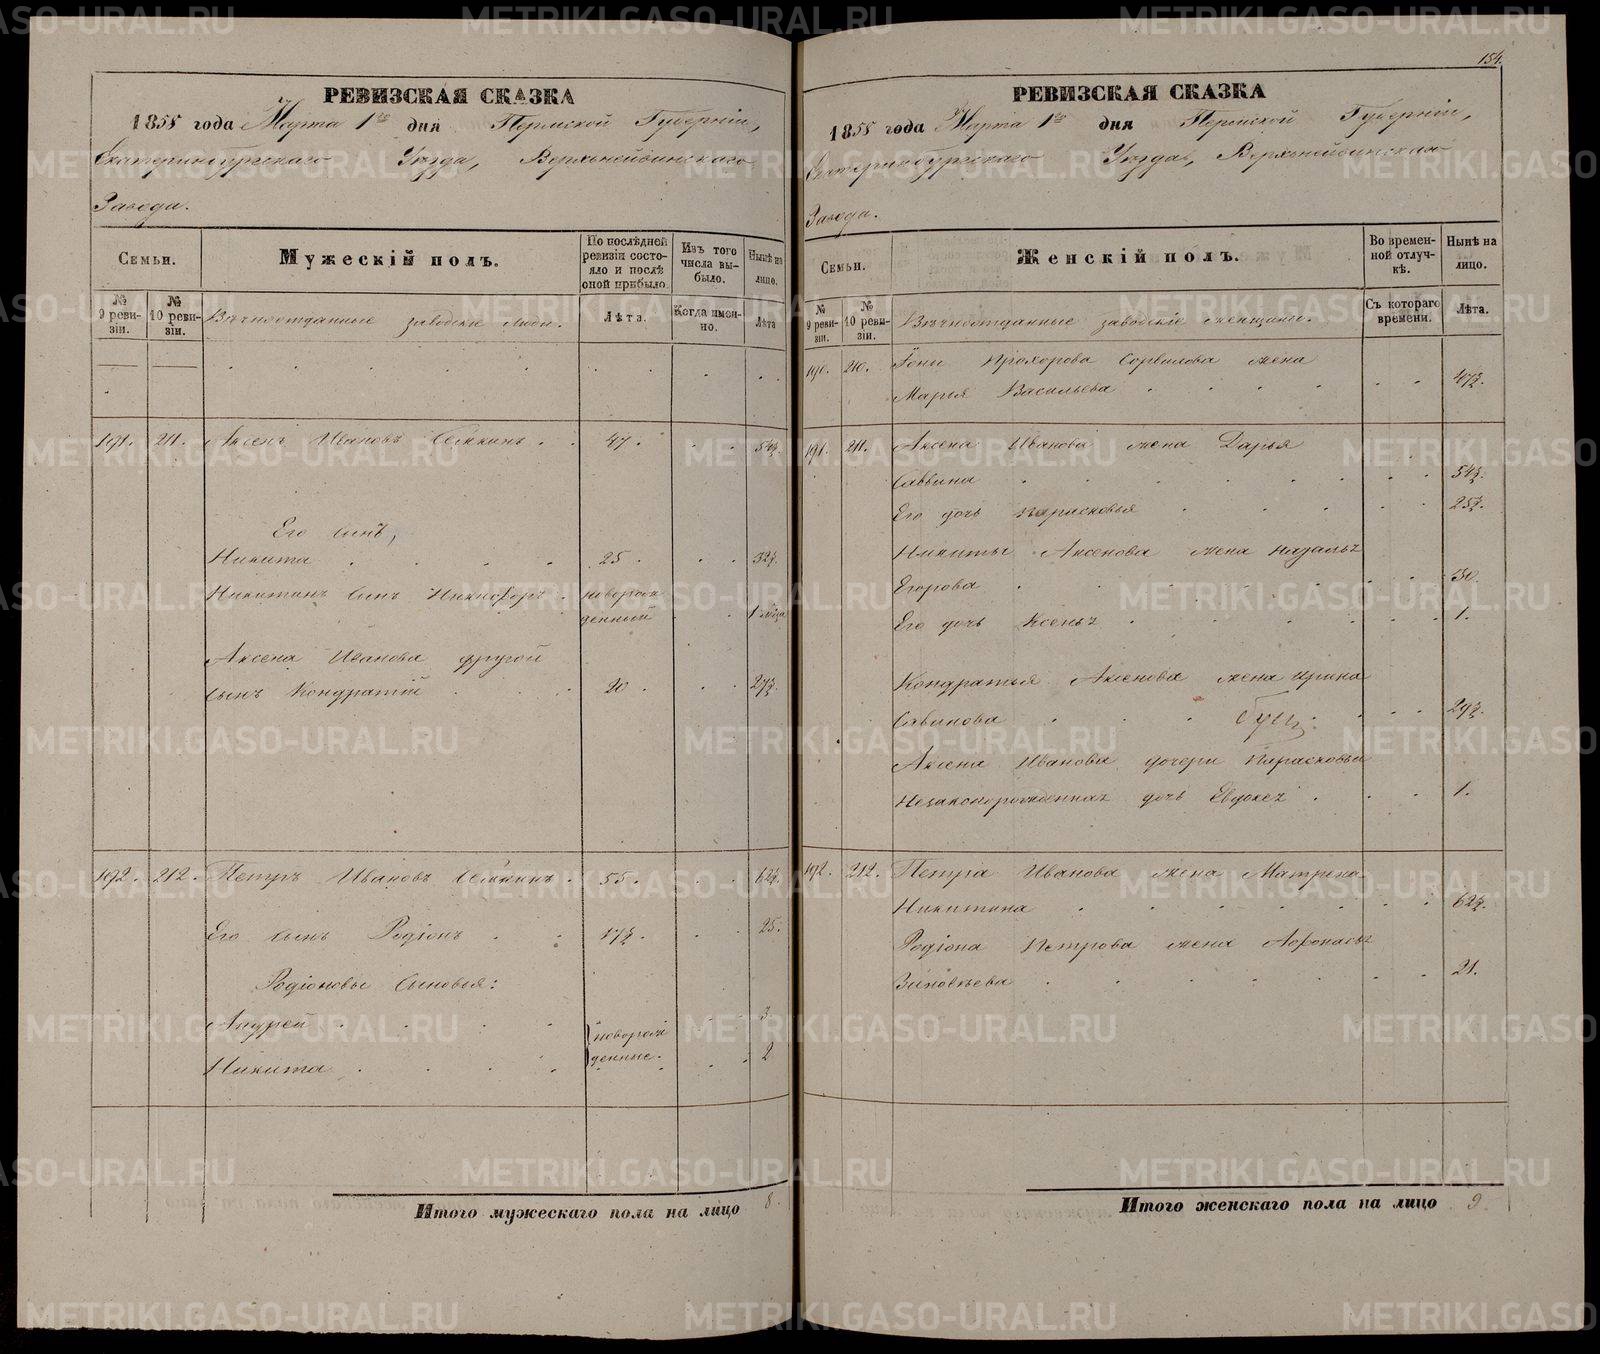 РЕВИЗСКАЯ СКАЗКА
1858 года Марта 1го дня Пермской Губерніи,
Екатеринбургскаго Уѣзда, Верхнейвинскаго
Завода.
Семьи.
Мужескій полъ.
По послѣдней ревизіи состояло и послѣ оной прибыло.
Изъ того числа выбыло.
Нынѣ на лицо.
№ 9 ревизіи.
№ 10 ревизіи.
Вѣчноотданные заводскіе люди.
Лѣта.
Когда именно.
Лѣта
191. 211. Аксенъ Ивановъ 47. 54½.
Его сынъ,
Никита 25. 32½.
Никитинъ сынъ Никифоръ новорож
денный 1 м-ца
Аксена Иванова другой
сынъ Кондратій 20. 27½.
192. 212. Петръ Ивановъ 55. 62½.
Его сынъ Родіонъ 17½. 25.
Родіоновы сыновья:
Андрей новорож 3
Никита денные. 2
Итого мужескаго пола на лицо 8.
154.
РЕВИЗСКАЯ СКАЗКА
1858 года Марта 1го дня Пермской Губерніи,
Екатеринбургскаго Уѣзда, Верхнейвинскаго
Завода.
Семьи.
Женскій полъ.
Во временной отлучкѣ.
Нынѣ на лицо.
№ 9 ревизіи.
№ 10 ревизіи.
Вѣчноотданные заводскіе женщины.
Съ котораго времени.
Лѣта.
190. 210. Прохорова жена
Марья Васильева 47½.
191. 211. Аксена Иванова жена Дарья
Саввина 54½.
Его дочь Парасковья 25½.
Никиты Аксенова жена
Егорова 30.
Его дочь Ксенья 1.
Кондратья Аксенова жена Ирина
Савинова 29½.
Аксена Иванова дочери Парасковьи
Незаконорожденная дочь Евдокея 1.
192. 212. Петра Иванова жена Матрена
Никитина 62½.
Родіона Петрова жена Афонасья
Зиновьева 21.
Итого женскаго пола на лицо 9
METRIKI.GASO-URAL.RU